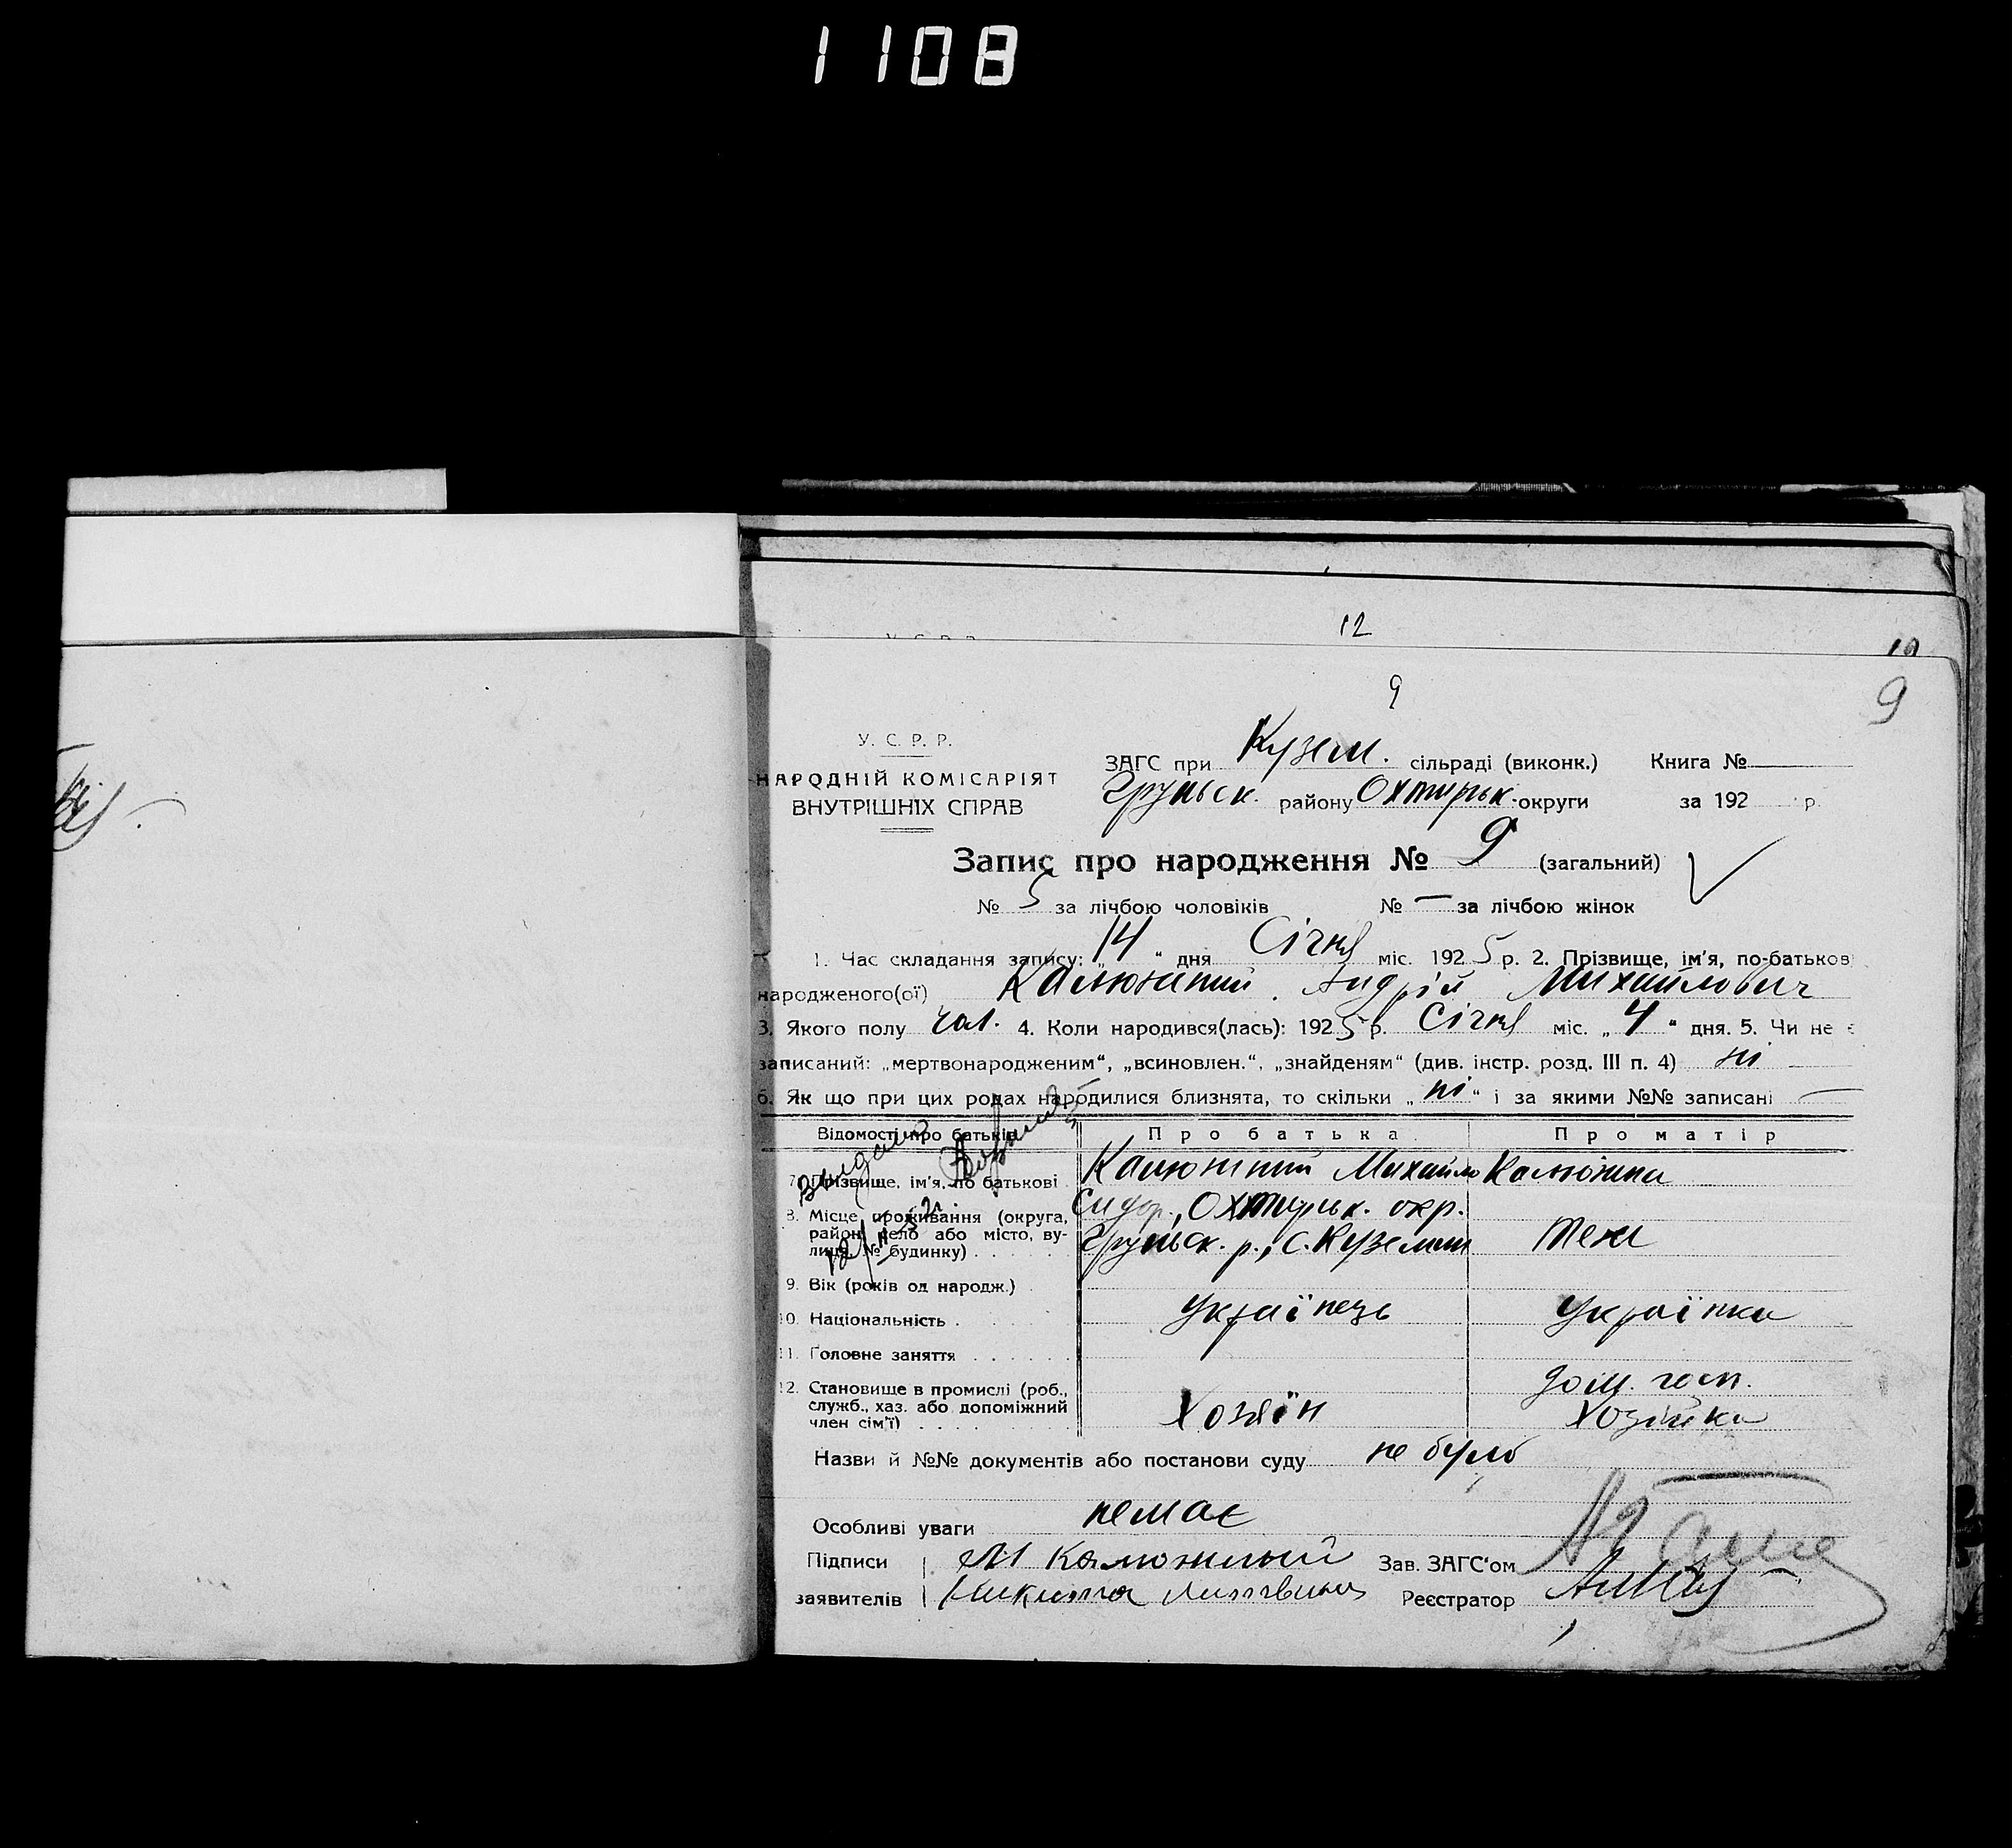 1108
12
10
9
9
У. С. Р. Р.
НАРОДНІЙ КОМІСАРІЯТ
ВНУТРІШНІХ СПРАВ
ЗАГС при Кузем. сільраді (виконк.) Книга №
Груньск. району Охтирьк. округи за 192 р.
Запис про народження № 9 (загальний)
№ 5 за лічбою чоловіків № — за лічбою жінок
1. Час складання запису: „14“ дня Січня міс. 1925 р. 2. Прізвище, ім'я, по-батьков
народженого(ої) Калюжний Андрій Михайлович
3. Якого полу чол. 4. Коли народився(лась): 1925 р. Січня міс. „4“ дня. 5. Чи не є
записаний: „мертвонародженим“, „всиновлен.“, „знайденям“ (див. інстр. розд. III п. 4) ні
6. Як що при цих родах народилися близнята, то скільки „ні“ і за якими №№ записані —
Відомості про батьків Про батька Про матір
7. Прізвище, ім'я, по батькові Калюжний Михайло Калюжна
Сидор., Охтирьк. окр.
8. Місце проживання (округа,
район, село або місто, ву-
лиця, № будинку) Груньск. р., с. Куземин теж
9. Вік (років од народж.)
10. Національність Українець Українка
11. Головне заняття
дом. госп.
12. Становище в промислі (роб.,
служб., хаз. або допоміжний
член сім'ї) Хозяїн Хозяйка
Назви й №№ документів або постанови суду не було
Особливі уваги немає
Підписи М Калюжный Зав. ЗАГС'ом
заявителів Никита Литвин Реєстратор